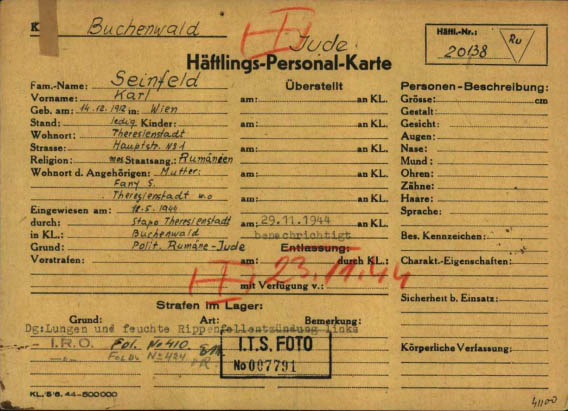 K Buchenwald
Jude
Häftl.-Nr.:
20138
Ru
Häftlings-Personal-Karte
Fam.-Name: Seinfeld
Vorname: Karl
Geb. am: 14.12.1912 in: Wien
Stand: ledig Kinder:
Wohnort: Theresienstadt
Strasse: Hauptstr. No 1
Religion: mos Staatsang.: Rumäneen
Wohnort d. Angehörigen: Mutter:
Fany S.
Theresienstadt w.o
Eingewiesen am: 18.5.1944
durch: Stapo Theresienstadt
in KL.: Buchenwald
Grund: Polit. Rumäne-Jude
Vorstrafen:
Überstellt
am: an KL.
am: an KL.
am: an KL.
am: an KL.
am: an KL.
am: 29.11.1944 an KL.
benachrichtigt
Entlassung:
am: durch KL.:
23.11.44
mit Verfügung v.:
Personen-Beschreibung:
Grösse: cm
Gestalt:
Gesicht:
Augen:
Nase:
Mund:
Ohren:
Zähne:
Haare:
Sprache:
Bes. Kennzeichen:
Charakt.-Eigenschaften:
Sicherheit b. Einsatz:
Körperliche Verfassung:
Strafen im Lager:
Grund: Art: Bemerkung:
Dg:Lungen und feuchte Rippenfellentzündung links
I.R.O. Fol. No 410
Fol. No 424
I.T.S. FOTO
No 007791
KL/5/6. 44-500000
41100